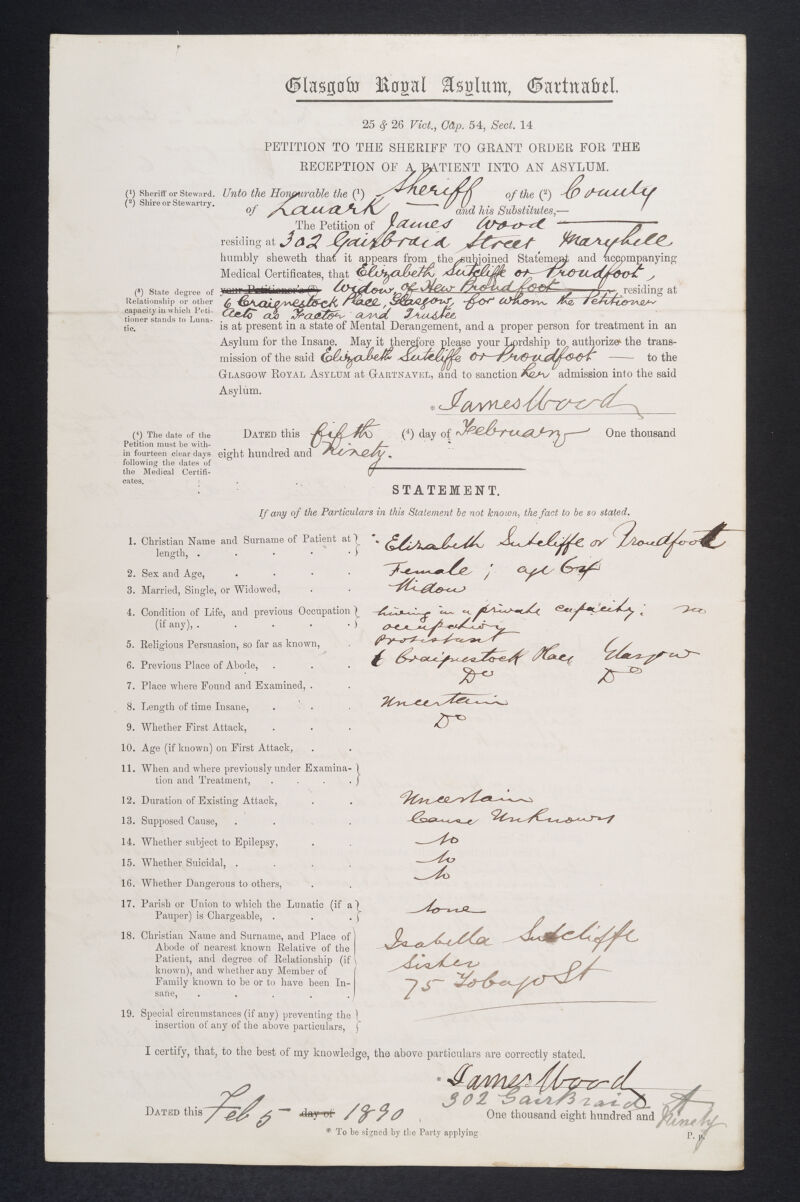 Glasgow Royal Asylum, Gartnavel.
25 & 26 Vict., Cap. 54, Sect. 14
PETITION TO THE SHERIFF TO GRANT ORDER FOR THE
RECEPTION OF A PATIENT INTO AN ASYLUM.
(¹) Sheriff or Steward.
(²) Shire or Stewartry.
Unto the Honourable the (¹) Sheriff of the (²) County
of Lanark — and his Substitutes,—
The Petition of James Wood
residing at 302 Gairbraid Street Maryhill
humbly sheweth that it appears from the subjoined Statement and accompanying
Medical Certificates, that Elizabeth Sutcliffe or Proudfoot,
(³) State degree of
Relationship or other
capacity in which Peti-
tioner stands to Luna-
tic.
your Petitioner's (³) Widow of Hew Proudfoot residing at
6 Craignestock Place, Glasgow, for whom the Petitioner
Acts as Factor and Trustee
is at present in a state of Mental Derangement, and a proper person for treatment in an
Asylum for the Insane. May it therefore please your Lordship to authorize the trans-
mission of the said Elizabeth Sutcliffe or Proudfoot — to the
GLASGOW ROYAL ASYLUM AT GARTNAVEL, and to sanction her admission into the said
Asylum.
* James Wood
(⁴) The date of the
Petition must be with-
in fourteen clear days
following the dates of
the Medical Certifi-
cates.
DATED this fifth (⁴) day of February One thousand
eight hundred and Ninety.
STATEMENT.
If any of the Particulars in this Statement be not known, the fact to be so stated.
1. Christian Name and Surname of Patient at
length, . Elizabeth Sutcliffe or Proudfoot
2. Sex and Age, Female ; age
3. Married, Single, or Widowed, Widow
4. Condition of Life, and previous Occupation
(if any), living in a private capacity: no
occupation
5. Religious Persuasion, so far as known, Protestant
6. Previous Place of Abode, 6 Craignestock Place Glasgow
7. Place where Found and Examined, Do Do
8. Length of time Insane, Uncertain
9. Whether First Attack, Do
10. Age (if known) on First Attack,
11. When and where previously under Examina-
tion and Treatment,
12. Duration of Existing Attack, Uncertain
13. Supposed Cause, Cause Unknown
14. Whether subject to Epilepsy, No
15. Whether Suicidal, No
16. Whether Dangerous to others, No
17. Parish or Union to which the Lunatic (if a
Pauper) is Chargeable, None
18. Christian Name and Surname, and Place of
Abode of nearest known Relative of the
Patient, and degree of Relationship (if
known), and whether any Member of
Family known to be or to have been In-
sane,
Isabella Sutcliffe
Sister
75 Tobago St
19. Special circumstances (if any) preventing the
insertion of any of the above particulars,
I certify, that, to the best of my knowledge, the above particulars are correctly stated.
* James Wood
302 GairBraid St
DATED this Feb 5 day of 1890 One thousand eight hundred and Ninety
* To be signed by the Party applying
P. p.